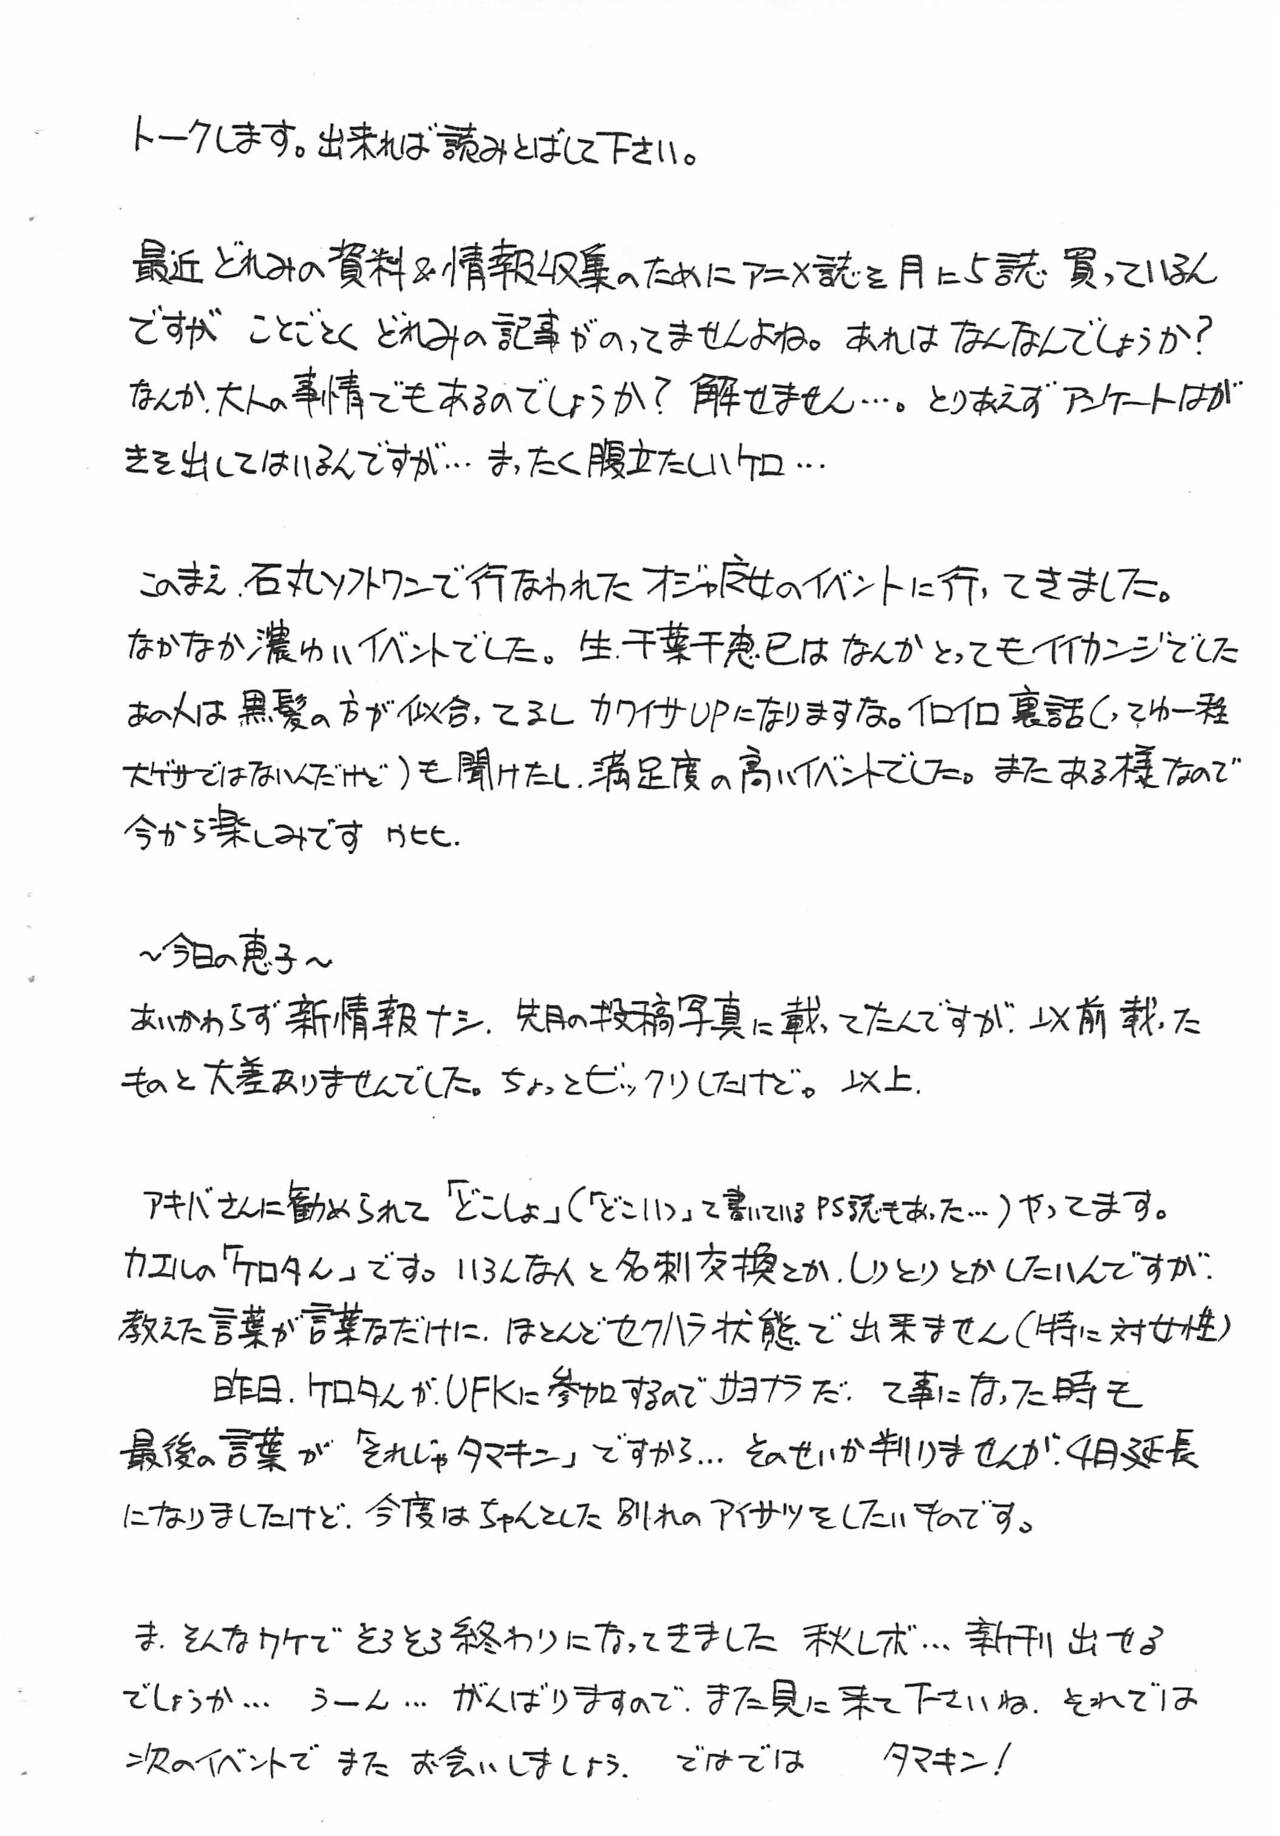 トークします。出来れば読みとばして下さい。
最近どれみの資料&情報収集のためにアニメ誌を月に5誌買っているん
ですがことごとくどれみの記事がのってませんよね。あれはなんなんでしょうか?
なんか、大人の事情でもあるのでしょうか?解せません…。とりあえずアンケートはが
きを出してはいるんですが…まったく腹立たしいケロ…
このまえ、石丸ソフトワンで行なわれたオジャ魔女のイベントに行ってきました。
なかなか濃ゆいイベントでした。生、千葉千恵巳はなんかとってもイイカンジでした
あの人は黒髪の方が似合ってるしカワイサUPになりますな。イロイロ裏話(ってゆー程
大ゲサではないんだけど)も聞けたし、満足度の高いイベントでした。またある様なので
今から楽しみです ウヒヒ.
~今日の恵子~
あいかわらず新情報ナシ、先月の投稿写真に載ってたんですが、以前載った
ものと大差ありませんでした。ちょっとビックリしたけど。以上.
アキバさんに勧められて「どこしょ」(「どこいつ」て書いているPS誌もあった…)やってます。
カエルの「ケロタん」です。いろんな人と名刺交換とか、しりとりとかしたいんですが、
教えた言葉が言葉なだけに、ほとんどセクハラ状態で出来ません(特に対女性)
昨日、ケロタんが、UFKに参加するのでサヨナラだ、て事になった時も
最後の言葉が「それじゃタマキン」ですから…そのせいか判りませんが、4日延長
になりましたけど、今度はちゃんとした別れのアイサツをしたいものです。
ま、そんなワケでそろそろ終わりになってきました 秋レボ…新刊出せる
でしょうか… うーん… がんばりますので、また見に来て下さいね、それでは
次のイベントでまたお会いしましょう、ではでは タマキン!